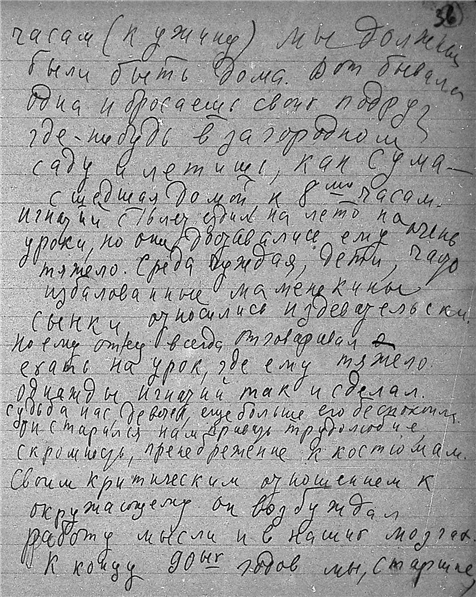 36
часам (к ужину) мы должны
были быть дома. Вот бывало
одна и бросаешь своих подруг
где-нибудь в загородном
саду и летишь, как сума-
сшедшая домой к 8ми часам.
Игнатий ездил на лето на
уроки, но они доставались ему очень
тяжело. Среда чуждая, дети, чадо
избалованные маменькины
сынки относились издевательски.
но ему отец всегда отговаривал
ехать на урок, где ему тяжело.
Однажды Игнатий так и сделал.
Судьба нас девочек, еще больше его беспокоила.
Он старался нам привить трудолюбие
скромность, пренебрежение к костюмам.
Своим критическим отношением к
окружающему он возбуждал
работу мысли и в наших мозгах.
К концу 90ых годов мы, старшие